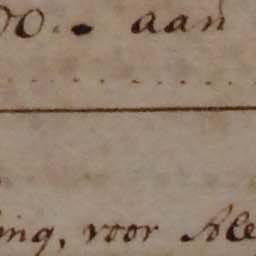 00.. aan
ing, voor Ale